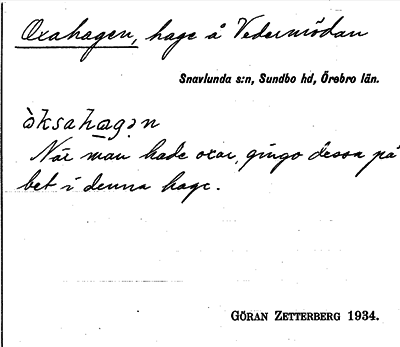 Oxahagen, hage å Vedermödan
Snavlunda s:n, Sundbo hd, Örebro län.
 òksahagən
När man hade oxar, gingo dessa på
bet i denna hage.
GÖRAN ZETTERBERG 1934.